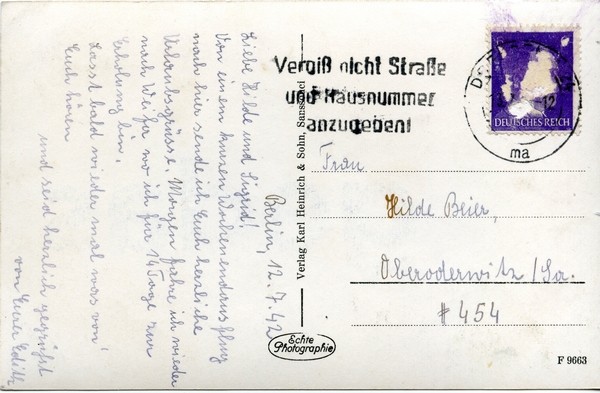 Berlin, 12.7.42
Liebe Hilde und Sigrid!
Von einem kurzen Wochenendausflug
nach hier sende ich Euch herzliche
Urlaubsgrüsse. Morgen fahre ich wieder
nach wo ich für 14 Tage zur
Erholung bin.
Lasst bald wieder mal was von
Euch hören
und seid herzlich gegrüßt
von Eurer Edith
Vergiß nicht Straße
und Hausnummer
anzugeben!
DEUTSCHES REICH
-12
ma
Verlag Karl Heinrich & Sohn, Sanssouci
Echte
Photographie
Frau
Hilde Beier,
Oberoderwitz/Sa.
# 454
F 9663